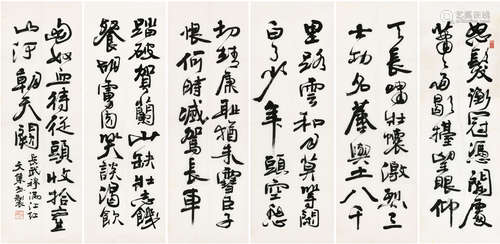 怒髮衝冠憑闌處
瀟瀟雨歇擡望眼仰
天長嘯壯懷激烈三
十功名塵與土八千
里路雲和月莫等閒
白了少年頭空悲
切靖康恥猶未雪臣子
恨何時滅駕長車
踏破賀蘭山缺壯志饑
餐胡虜肉笑談渴飲
匈奴血待從頭收拾舊
山河朝天闕
岳武穆滿江紅